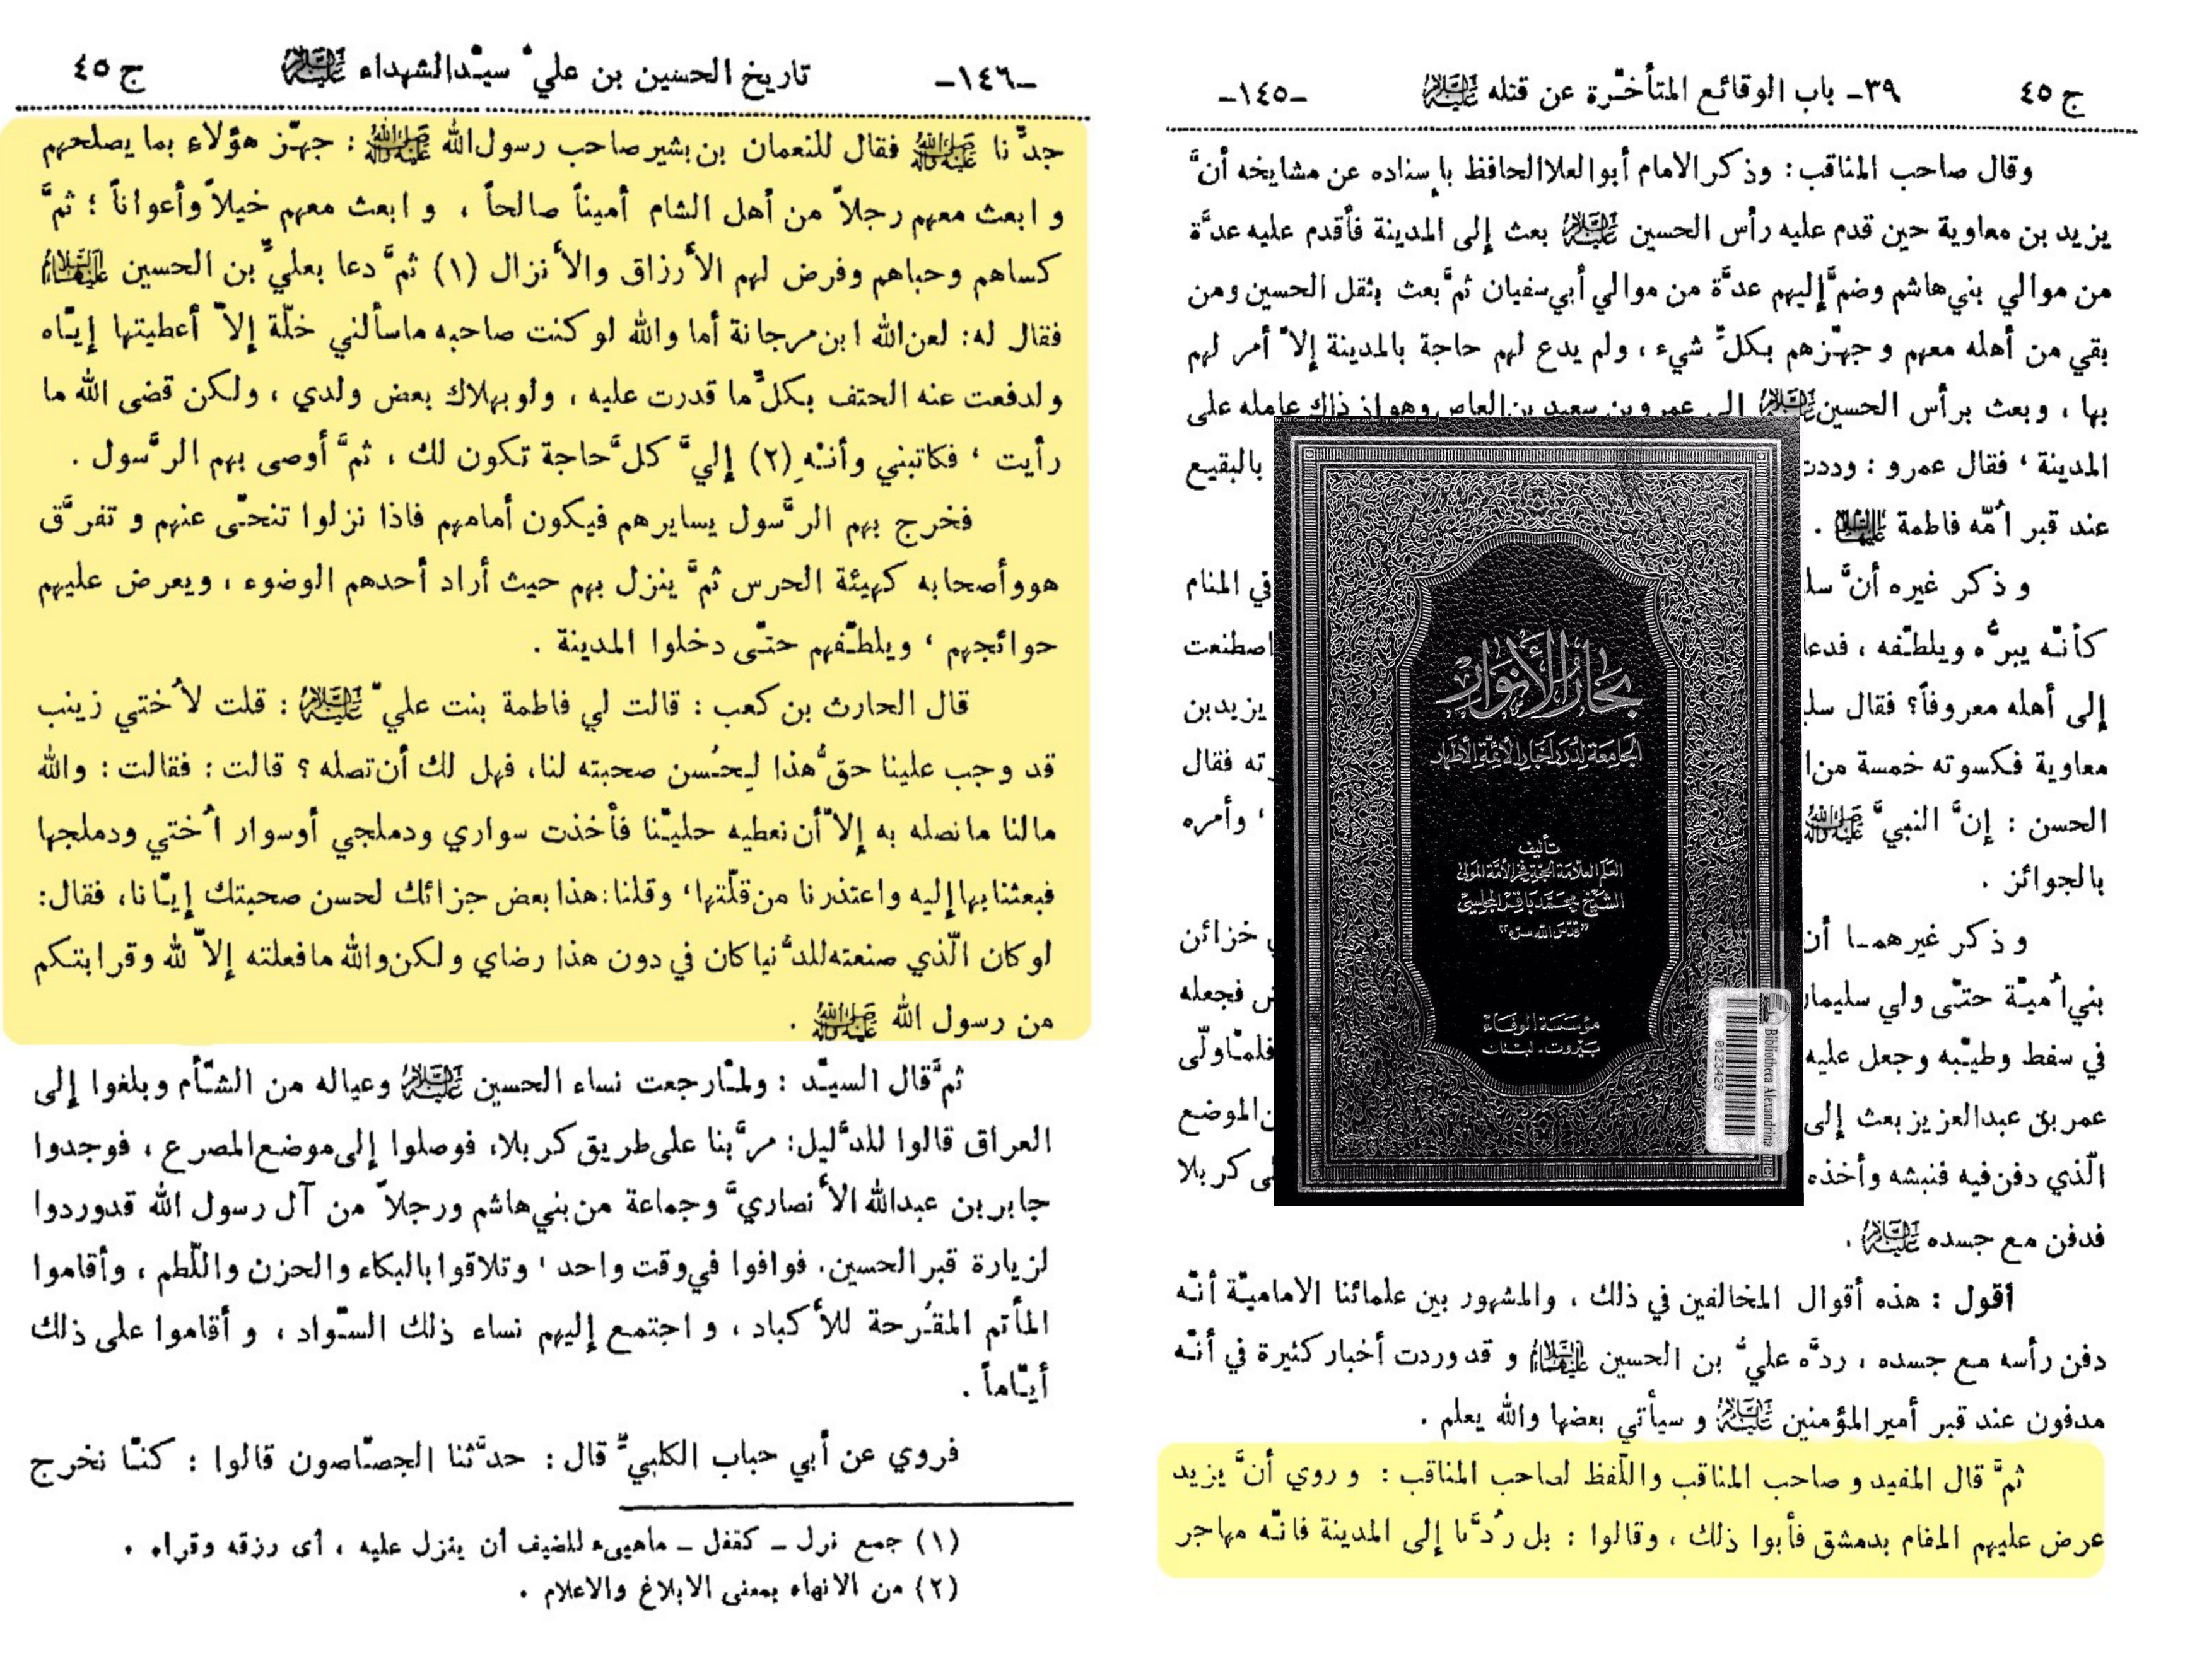 ج ٤٥ ٣٩ـ باب الوقائع المتأخّرة عن قتله عليه السلام ـ١٤٥ـ
وقال صاحب المناقب : وذكر الامام أبوالعلا الحافظ باسناده عن مشايخه أنَّ
يزيد بن معاوية حين قدم عليه رأس الحسين عليه السلام بعث إلى المدينة فأقدم عليه عدَّة
من موالي بني هاشم وضمَّ إليهم عدَّة من موالي أبي سفيان ثمَّ بعث بثقل الحسين ومن
بقي من أهله معهم وجهّزهم بكلِّ شيء ، ولم يدع لهم حاجة بالمدينة إلاّ أمر لهم
بها ، وبعث برأس الحسين عليه السلام إلى عمرو بن سعيد بن العاص وهو إذ ذاك عامله على
المدينة ، فقال عمرو : وددت بالبقيع
عند قبر اُمّه فاطمة عليها السلام .
و ذكر غيره أنَّ في المنام
كأنّه يبرُّه ويلطّفه ، فدعا اصطنعت
إلى أهله معروفاً؟ فقال يزيد بن
معاوية فكسوته خمسة فقال
الحسن : إنَّ النبيَّ صلى الله عليه وآله ، وأمره
بالجوائز .
و ذكر غيرهما أن خزائن
بني اُميّة حتّى ولي فجعله
في سفط وطيّبه وجعل عليه فلمّا ولّى
عمر بن عبدالعزيز بعث إلى الموضع
الّذي دفن فيه فنبشه وأخذه كربلا
فدفن مع جسده عليه السلام .
أقول : هذه أقوال المخالفين في ذلك ، والمشهور بين علمائنا الاماميّة أنّه
دفن رأسه مع جسده ، ردَّه عليُّ بن الحسين عليهما السلام و قد وردت أخبار كثيرة في أنّه
مدفون عند قبر أمير المؤمنين عليه السلام و سيأتي بعضها والله يعلم .
ثمَّ قال المفيد و صاحب المناقب واللّفظ لصاحب المناقب : و روي أنَّ يزيد
عرض عليهم المقام بدمشق فأبوا ذلك ، وقالوا : بل رُدَّنا إلى المدينة فانّه مهاجر
by Tiff Combine - (no stamps are applied by registered version)
بحار الأنوار
الجامعة لدرر أخبار الأئمة الأطهار
تأليف
العلم العلامة الحجة فخر الأمة المولى
الشيخ محمد باقر المجلسي
"قدس الله سره"
مؤسسة الوفاء
بيروت ـ لبنان
Bibliotheca Alexandrina
0123429
ـ١٤٦ـ تاريخ الحسين بن عليّ سيّد الشهداء عليه السلام ج ٤٥
جدِّنا صلى الله عليه وآله فقال للنعمان بن بشير صاحب رسول الله صلى الله عليه وآله : جهّز هؤلاء بما يصلحهم
و ابعث معهم رجلاً من أهل الشام أميناً صالحاً ، و ابعث معهم خيلاً وأعواناً ؛ ثمَّ
كساهم وحباهم وفرض لهم الأرزاق والأنزال (١) ثمَّ دعا بعليِّ بن الحسين عليهما السلام
فقال له: لعن الله ابن مرجانة أما والله لو كنت صاحبه ما سألني خلّة إلاّ أعطيتها إيّاه
ولدفعت عنه الحتف بكلِّ ما قدرت عليه ، ولو بهلاك بعض ولدي ، ولكن قضى الله ما
رأيت ، فكاتبني وأنهِ (٢) إليَّ كلَّ حاجة تكون لك ، ثمَّ أوصى بهم الرَّسول .
فخرج بهم الرَّسول يسايرهم فيكون أمامهم فاذا نزلوا تنحّى عنهم و تفرَّق
هو وأصحابه كهيئة الحرس ثمَّ ينزل بهم حيث أراد أحدهم الوضوء ، ويعرض عليهم
حوائجهم ، ويلطّفهم حتّى دخلوا المدينة .
قال الحارث بن كعب : قالت لي فاطمة بنت عليّ عليه السلام : قلت لاُختي زينب
قد وجب علينا حقُّ هذا لحُسن صحبته لنا، فهل لك أن تصله ؟ قالت : فقالت : والله
مالنا ما نصله به إلاّ أن نعطيه حليّنا فأخذت سواري ودملجي أو سوار اُختي ودملجها
فبعثنا بها إليه واعتذرنا من قلّتها، وقلنا: هذا بعض جزائك لحسن صحبتك إيّانا، فقال:
لو كان الّذي صنعته للدُّنيا كان في دون هذا رضاي ولكن والله ما فعلته إلاّ لله وقرابتكم
من رسول الله صلى الله عليه وآله .
ثمَّ قال السيّد : ولمّا رجعت نساء الحسين عليه السلام وعياله من الشّام وبلغوا إلى
العراق قالوا للدَّليل: مرَّ بنا على طريق كربلا، فوصلوا إلى موضع المصرع ، فوجدوا
جابر بن عبدالله الأنصاريَّ وجماعة من بني هاشم ورجلاً من آل رسول الله قد وردوا
لزيارة قبر الحسين، فوافوا في وقت واحد ، وتلاقوا بالبكاء والحزن واللّطم ، وأقاموا
المأتم المقرحة للأكباد ، و اجتمع إليهم نساء ذلك السّواد ، و أقاموا على ذلك
أيّاماً .
فروي عن أبي حباب الكلبيِّ قال : حدَّثنا الجصّاصون قالوا : كنّا نخرج
(١) جمع نزل ـ كقفل ـ ماهيىء للضيف أن ينزل عليه ، أى رزقه وقراه .
(٢) من الانهاء بمعنى الابلاغ والاعلام .